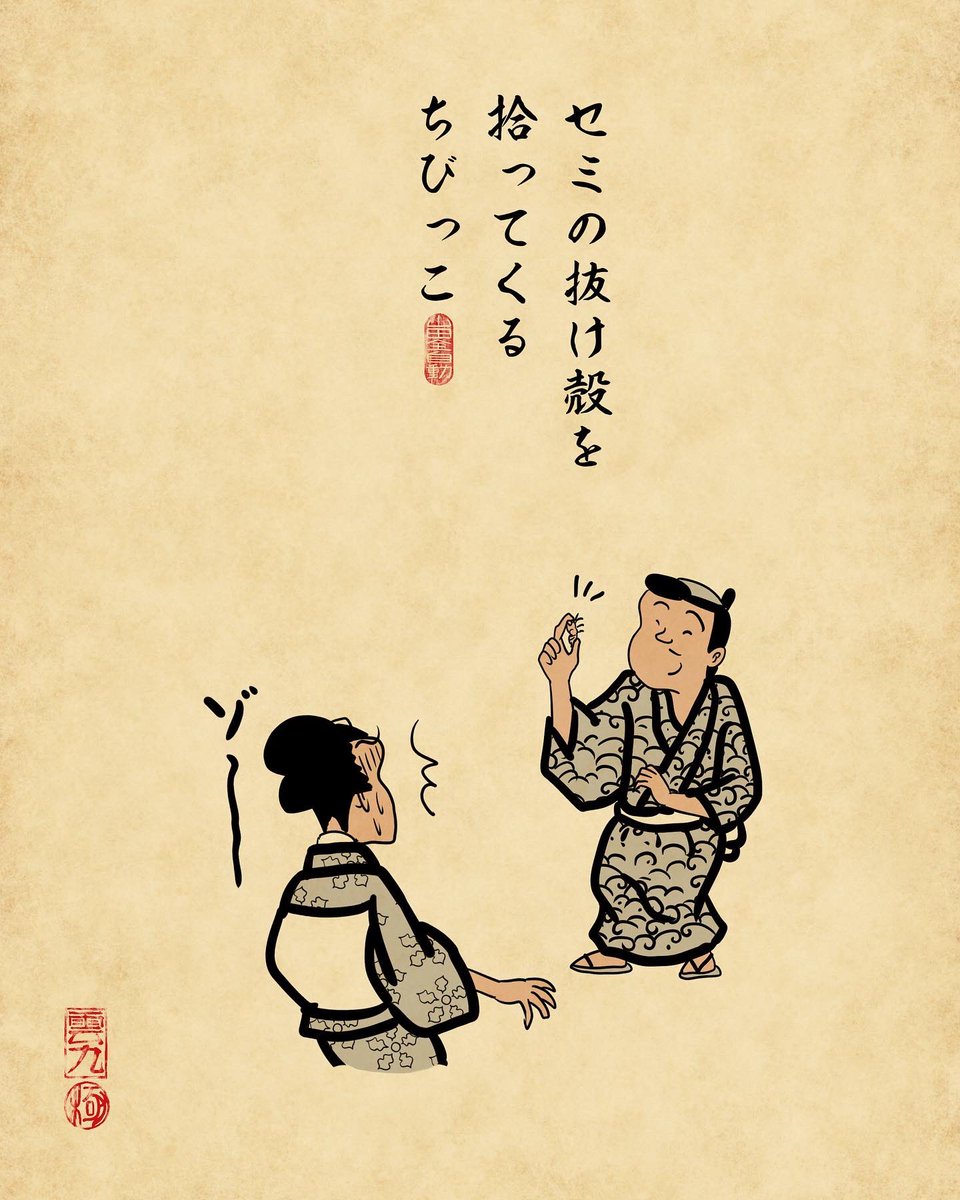 セミの抜け殻を
拾ってくる
ちびっこ
ゾー